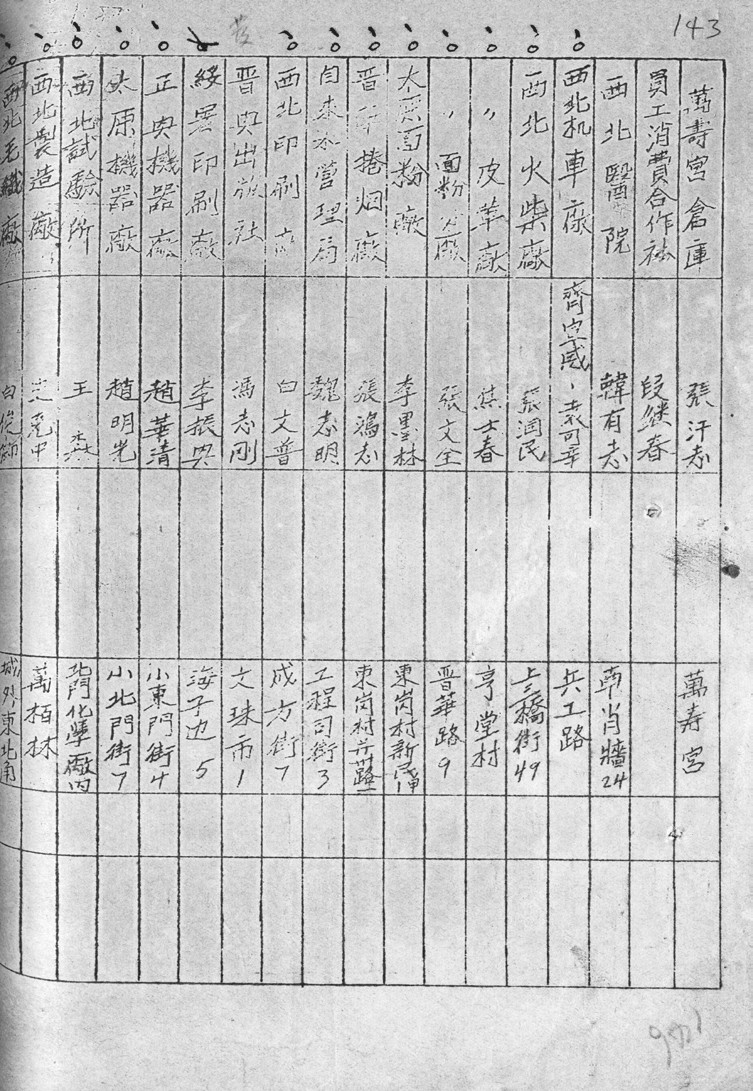 143
萬壽宮倉庫 張汗志 萬寿宮
員工消費合作社 段继春
西北醫院 韓有志 南肖牆24
西北机車廠 齊 兵工路
西北火柴廠 張润民 上三橋街49
〃皮革廠 士春 亨堂村
〃面粉分廠 張文全 晋華路9
太原面粉廠 李墨林 東崗村新
晋華捲烟廠 張鴻志 東崗村
自来水管理局 魏志明 工程司街3
西北印刷廠 白文普 成方街7
晋興出版社 馮志刚 文珠市1
綏署印刷廠 李振興 海子边5
正興機器廠 趙華清 小東門街4
太原機器廠 趙明光 小北門街7
西北試驗所 王森 北門化學廠内
西北製造廠 萬栢林
西北毛織廠 白俊 城外東北角